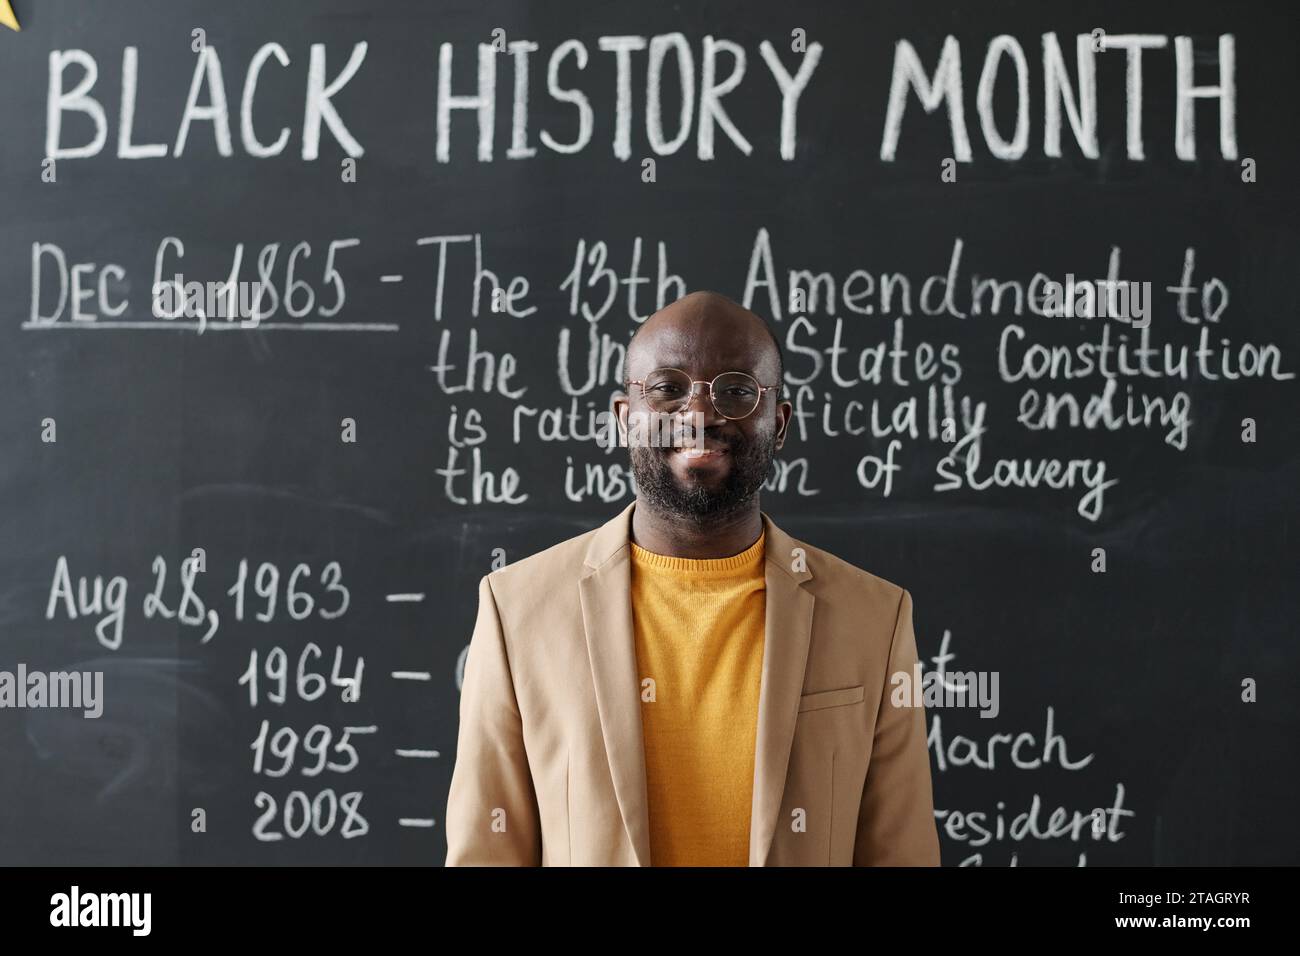 BLACK HISTORY MONTH
DEC 6, 1865 - The 13th Amendment to
the States Constitution
is officially ending
the of slavery
Aug 28, 1963 -
1964 -
1995 - March
2008 -
alamy
Image ID: 2TAGRYR
www.alamy.com